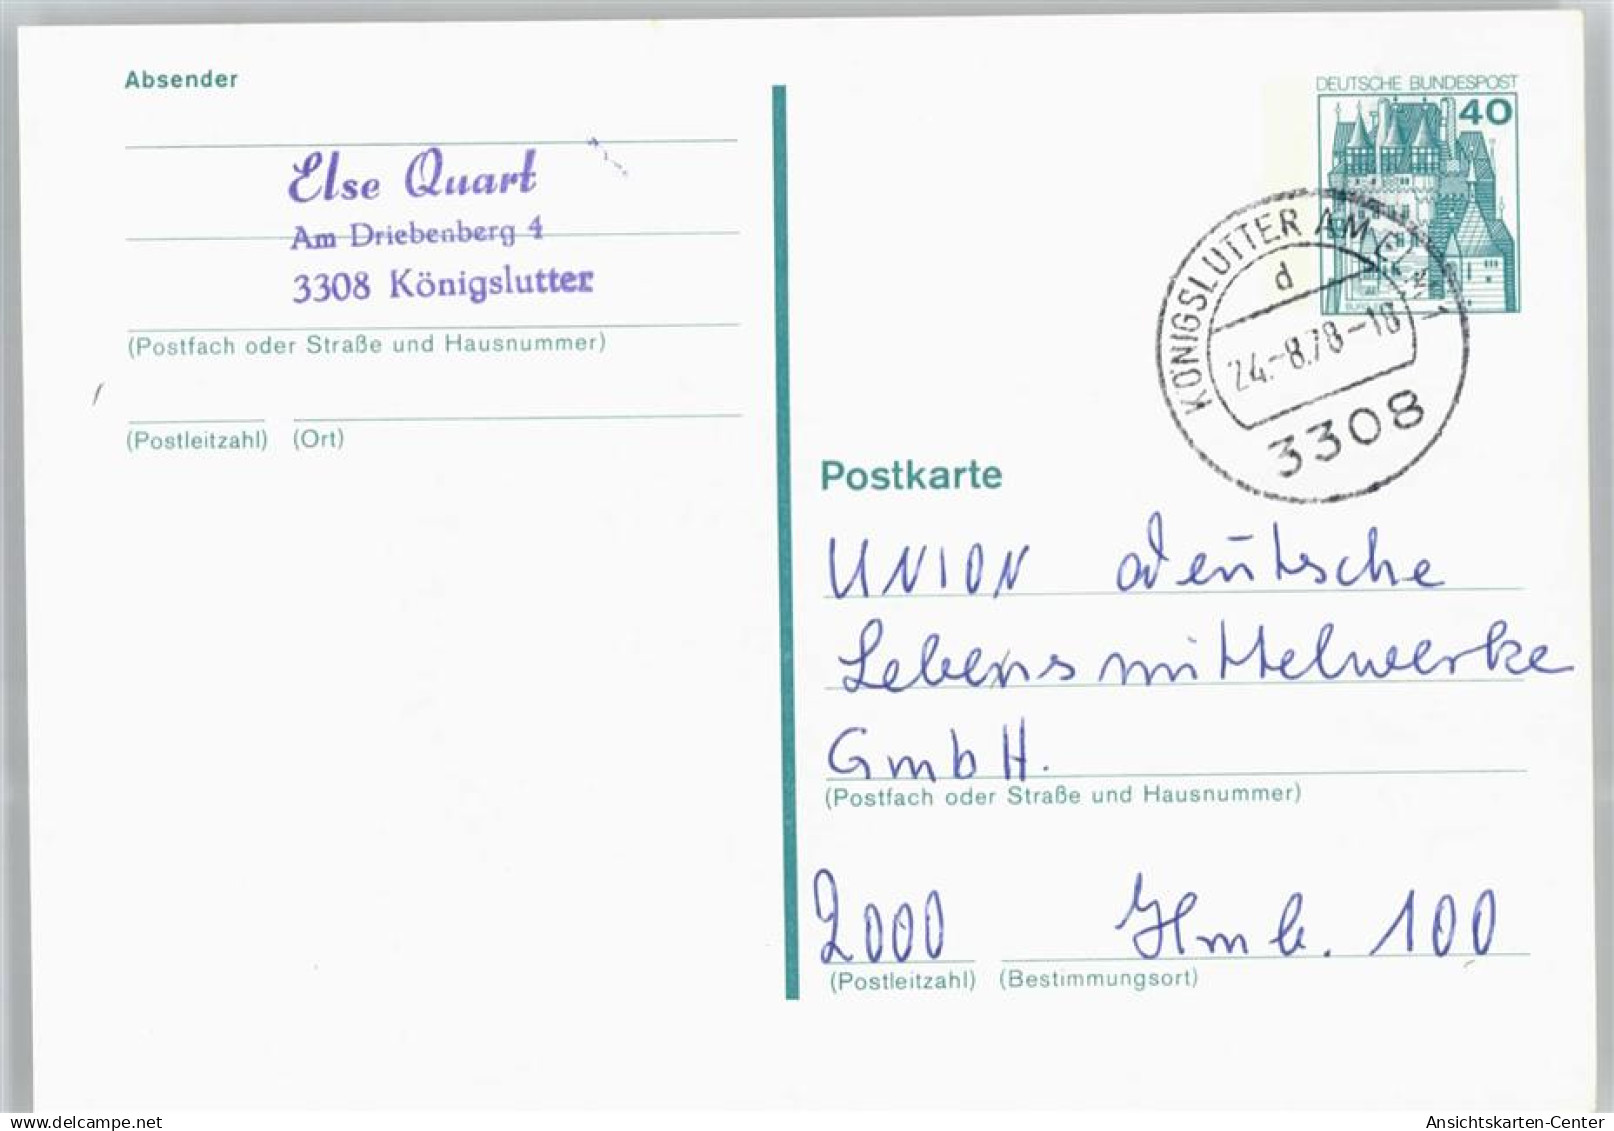 Absender
Else Quart
Am Driebenberg 4
3308 Königslutter
(Postfach oder Straße und Hausnummer)
(Postleitzahl) (Ort)
DEUTSCHE BUNDESPOST
40
KÖNIGSLUTTER AM ELM 1
d
24.-8.78-18
3308
Postkarte
UNION deutsche
Lebensmittelwerke
GmbH.
(Postfach oder Straße und Hausnummer)
2000 Hmb. 100
(Postleitzahl) (Bestimmungsort)
delcampe.net
Ansichtskarten-Center